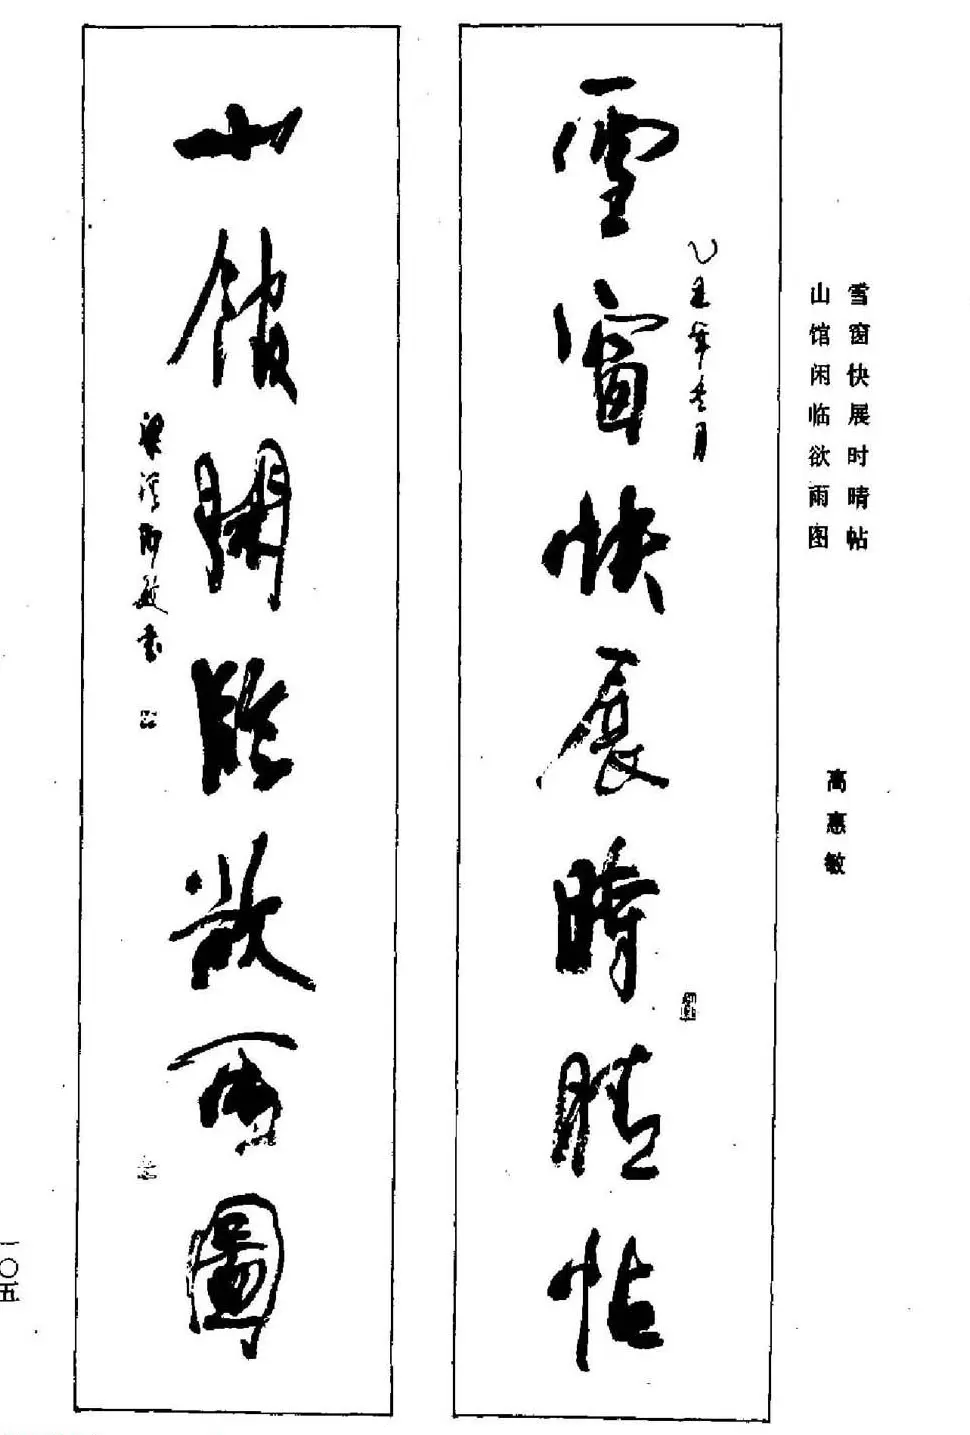 雪窗快展时晴帖
山馆闲临欲雨图
高惠敏
雪窗快展時晴帖
乙丑年冬月
山館閑臨欲雨圖
敏书
一〇五